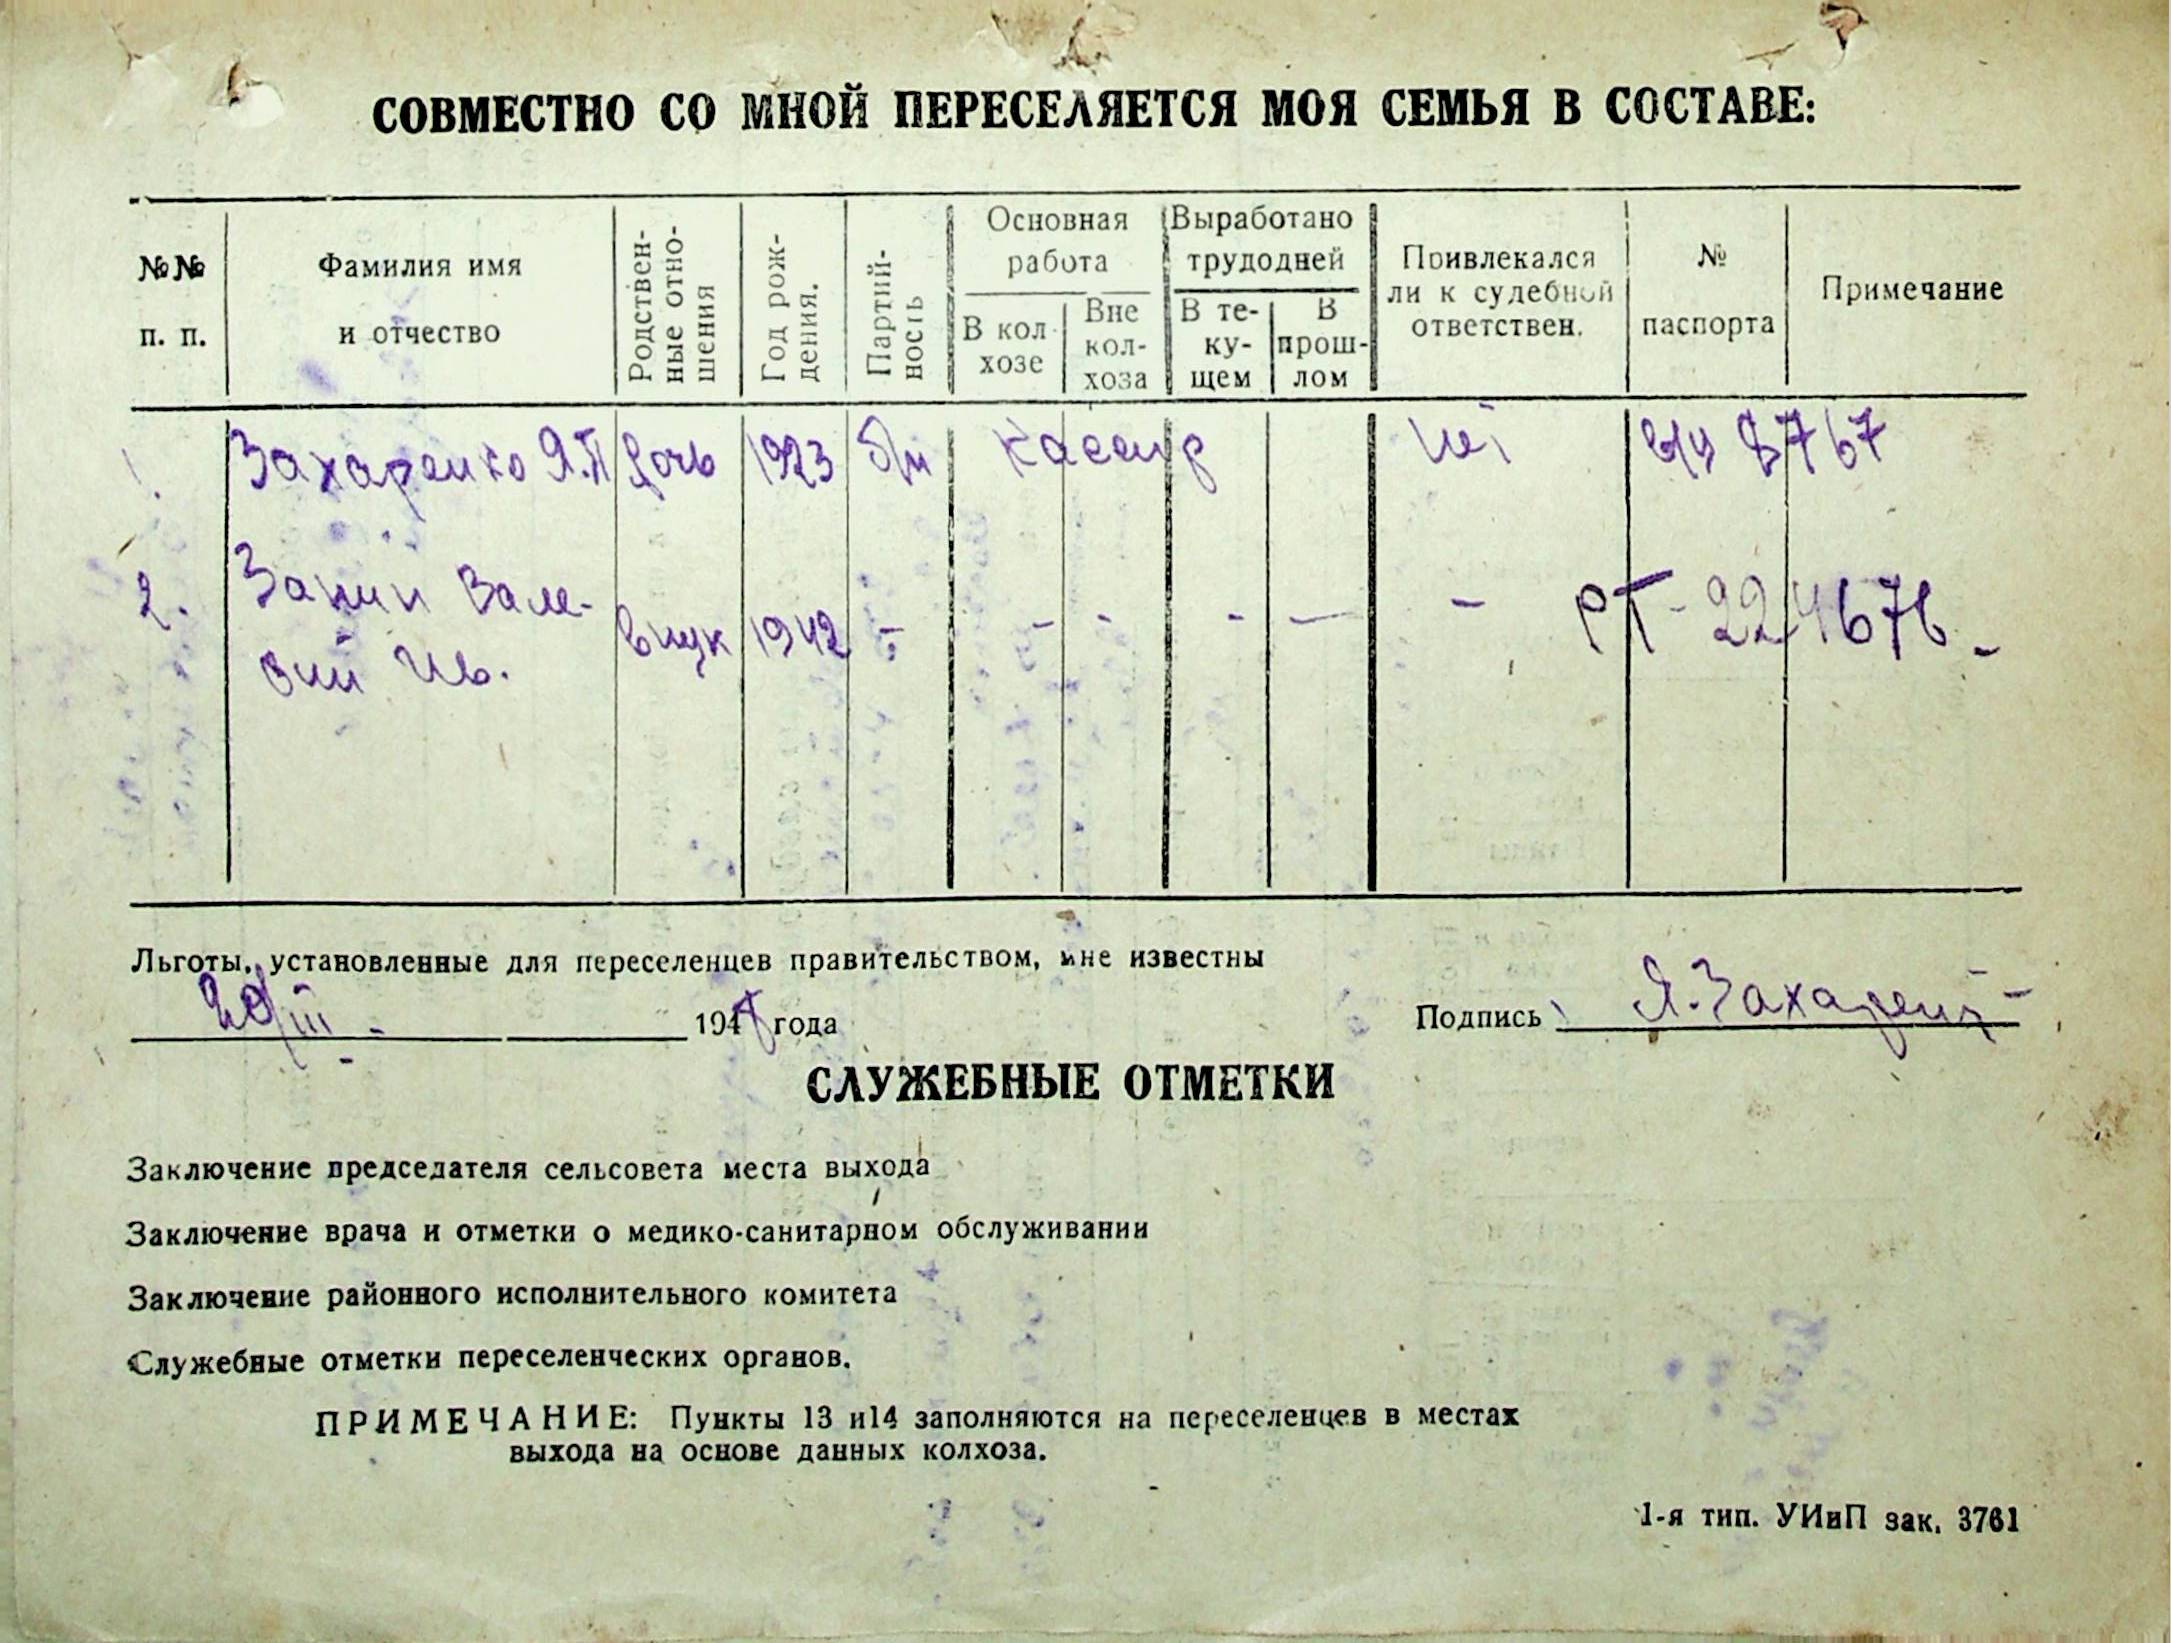 СОВМЕСТНО СО МНОЙ ПЕРЕСЕЛЯЕТСЯ МОЯ СЕМЬЯ В СОСТАВЕ:
№№ п. п.
Фамилия имя и отчество
Родствен-ные отно-шения
Год рож-дения.
Партий-ность
Основная работа
В кол-хозе
Вне кол-хоза
Выработано трудодней
В те-ку-щем
В прош-лом
Привлекался ли к судебной ответствен.
№ паспорта
Примечание
1. Захаренко Я.П дочь 1923 б/п кассир нет 8767
2. Занин Вале-
рий Ив. внук 1942 - - - - - - РТ-224676-
Льготы, установленные для переселенцев правительством, мне известны
29/III - 194 года
Подпись Я.Захарен
СЛУЖЕБНЫЕ ОТМЕТКИ
Заключение председателя сельсовета места выхода
Заключение врача и отметки о медико-санитарном обслуживании
Заключение районного исполнительного комитета
Служебные отметки переселенческих органов.
ПРИМЕЧАНИЕ: Пункты 13 и14 заполняются на переселенцев в местах
выхода на основе данных колхоза.
1-я тип. УИиП зак. 3761